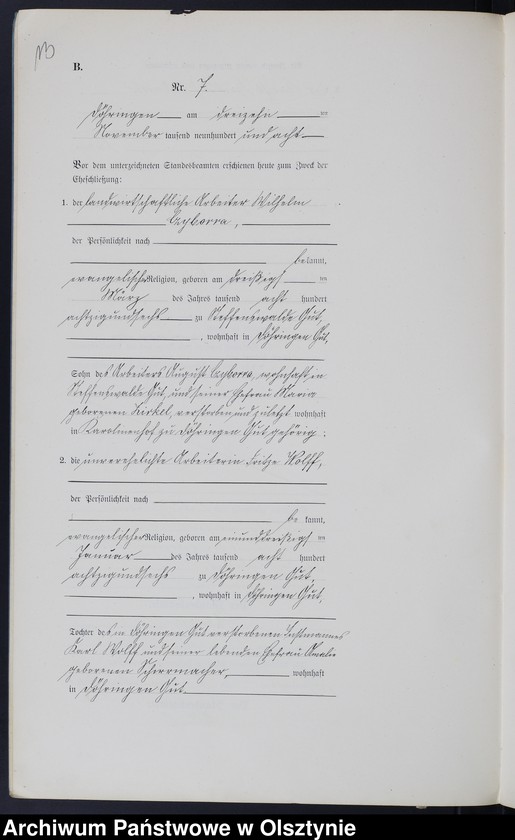 B.
Nr. 7.
Döhringen am dreizehn ten
November tausend neunhundert und acht
Vor dem unterzeichneten Standesbeamten erschienen heute zum Zweck der
Eheschließung:
1. der landwirtschaftliche Arbeiter Wilhelm
Czyborra,
der Persönlichkeit nach
bekannt,
evangelischer Religion, geboren am dreißigsten
März des Jahres tausend acht hundert
achtzigundsechs zu Steffenswalde Gut,
, wohnhaft in Döhringen Gut,
Sohn des Arbeiters August Czyborra, wohnhaft in
Steffenswalde Gut, und seiner Ehefrau Maria
geborenen, verstorben und zuletzt wohnhaft
in Karolinenhof zu Döhringen Gut gehörig.
2. die unverehelichte Arbeiterin Wolff,
der Persönlichkeit nach
be kannt,
evangelischer Religion, geboren am einunddreißigsten
Januar des Jahres tausend acht hundert
achtzigundsechs zu Döhringen Gut,
, wohnhaft in Döhringen Gut,
Tochter des in Döhringen Gut verstorbenen Instmannes
Karl Wolff und seiner lebenden Ehefrau Amalie
geborenen, wohnhaft
in Döhringen Gut
Archiwum Państwowe w Olsztynie